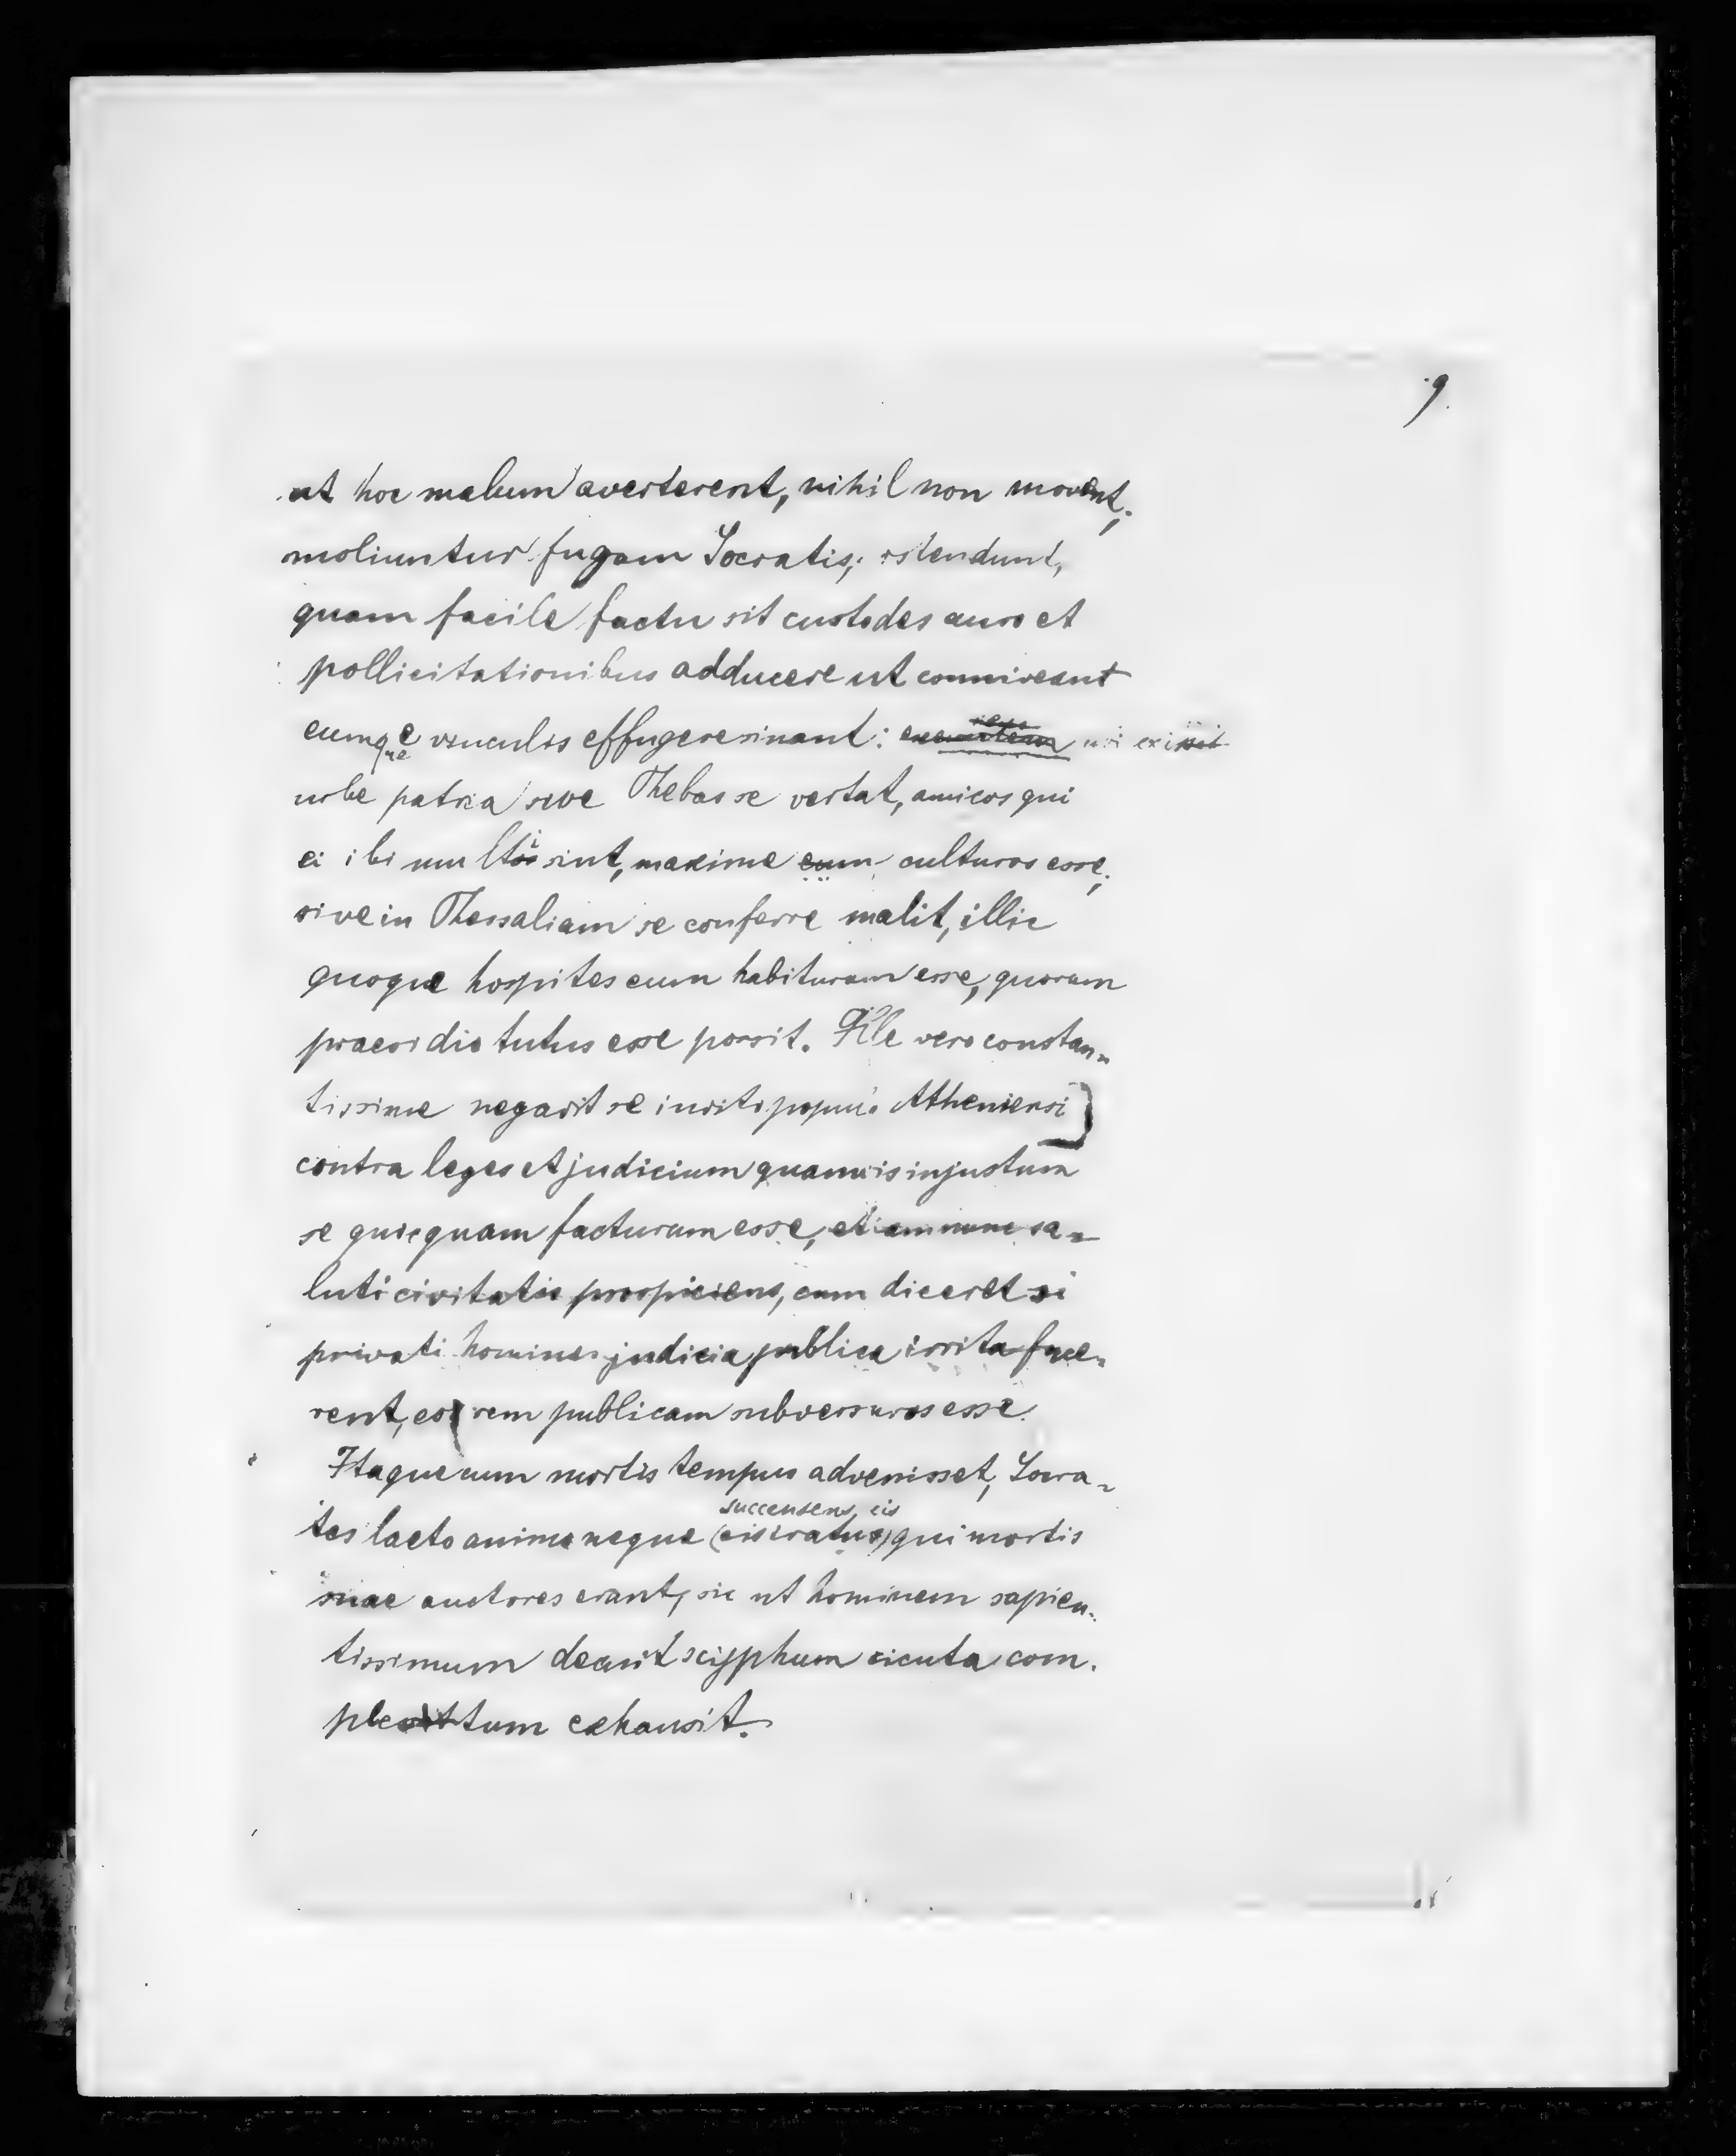 9.
ut hoc malum averterent, nihil non movent;
moliuntur fugam Socratis; ostendunt,
quam facile factu sit custodes auro et
pollicitationibus adducere ut conniveant
eumque e vinculis effugere sinant: exeuntem ubi exissit
urbe patria sive Thebas se vertat, amicos qui
ei ibi multi sint, maxime eum culturos esse;
sive in Thessaliam se conferre malit, illic
quoque hospites eum habiturum esse, quorum
praesidio tutus esse possit. Ille vero constan-
tissime negavit se invito populo Atheniensi]
contra leges et judicium quamvis injustum
se quicquam facturum esse, etiam nunc sa-
luti civitatis prospiciens, cum diceret si
privati homines judicia publica irrita face-
rent, eos rem publicam subversuros esse.
Itaque cum mortis tempus advenisset, Socra-
succensens eis
tes laeto animo neque (eis iratus) qui mortis
suae auctores erant, sic ut hominem sapien-
tissimum decuit scyphum cicuta com-
pletum exhausit.